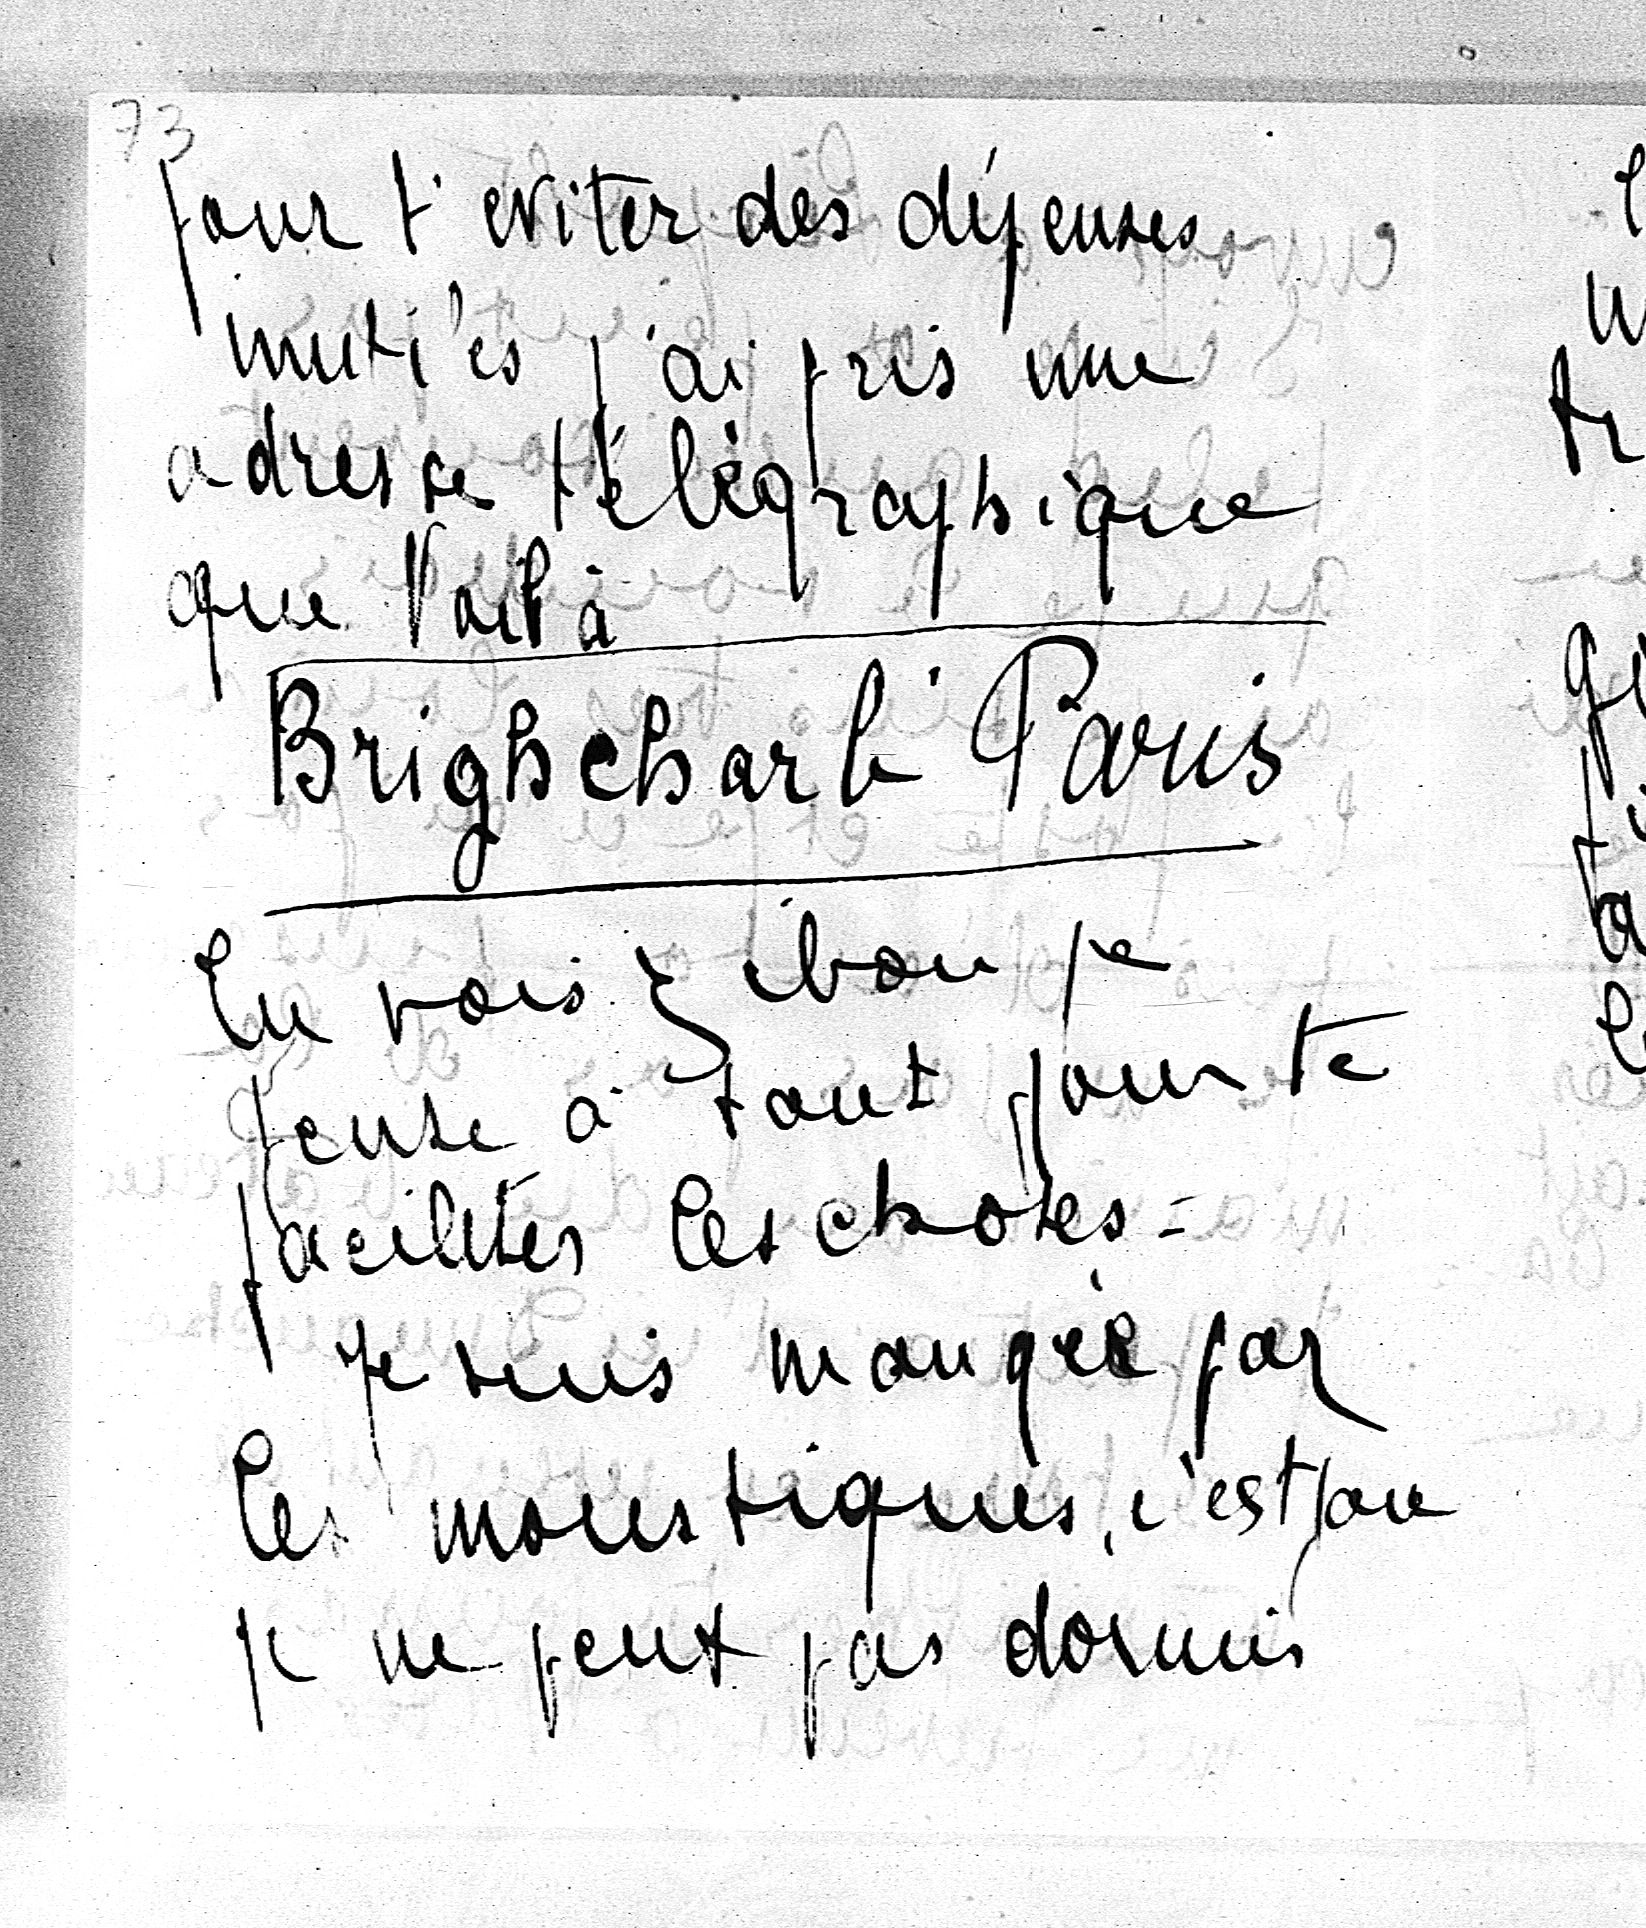 73
pour t'eviter des dépenses
inutiles j'ai pris une
adresse télégraphique
que Voilà
Brighcharb Paris
Tu vois si bon je
pense à tout pour te
faciliter les choses =
Je suis mangée par
les moustiques, c'est que
je ne peux pas dormir